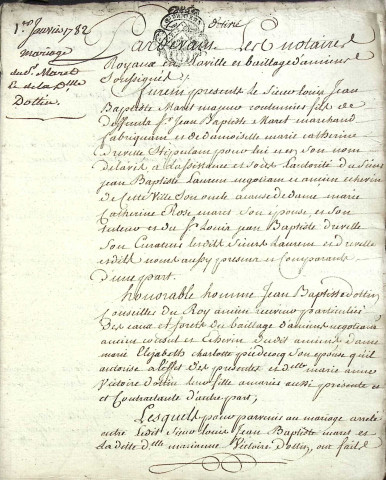 1er Janvier 1782
Mariage
du Sr. Maret
& de la Dlle
Dottin
Pardevant Les Notaires
Royaux en la ville et bailliage d'amiens
Soussignés;
Furent presents le Sieur Louis Jean
Baptiste Maret majeur fils de
deffunts Sr. Jean Baptiste Maret marchand
fabriquant et de Damoiselle marie catherine
Drevelle Stipulant pour lui et en Son nom
de l'avis assistance et Sous l'autorité du Sieur
Jean Baptiste Laurent negotiant ancien echevin
de Cette Ville Son oncle a cause de dame marie
Catherine Rose maret Son épouse et Son
tuteur et du Sr. Louis Jean Baptiste drevelle
Son Curateur lesdits Sieurs Laurent et drevelle
aussy presents et Comparants
d'une part.
honorable homme Jean Baptiste dottin
Conseiller du Roy ancien receveur particulier
des eaux et forets du bailliage d'amiens negotiant
ancien consul et Echevin dudit amiens dame
marie Elizabeth charlotte piedecocq Son épouse qu'il
autorise a l'effet des presentes et dlle marie anne
Victoire dottin leur fille a marier aussi presente
et Contractante d'autre part;
Lesquels pour parvenir au mariage arreté
entre ledit Sieur Louis Jean Baptiste maret et
La dite dlle marianne Victoire dottin, ont fait